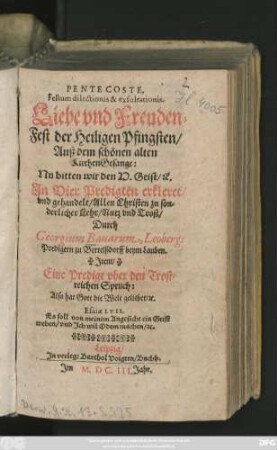 2
PENTECOSTE,
Festum dilectionis & exsultationis.
Liebe vnd Freuden-
Fest der Heiligen Pfingsten/
Auß dem schönen alten
KirchenGesange:
Nu bitten wir den H. Geist/ &.
In Vier Predigten erkleret/
vnd gehandelt/ Allen Christen zu son-
derlicher Lehr/ Nutz vnd Trost/
Durch
Georgium Bauarum, Leoberg:
Predigern zu Berthßdorff beym Lauben.
Item/
Eine Predigt vber den Trost-
reichen Spruch:
Also hat Gott die Welt geliebet/ &c.
Esaiæ LVII.
Es soll von meinem Angesicht ein Geist
weben/ vnd Ich wil Odem machen/ &c.
Leipzig/
In verleg: Barthol Voigten/ Buchh.
Im M. DC. III. Jahr.